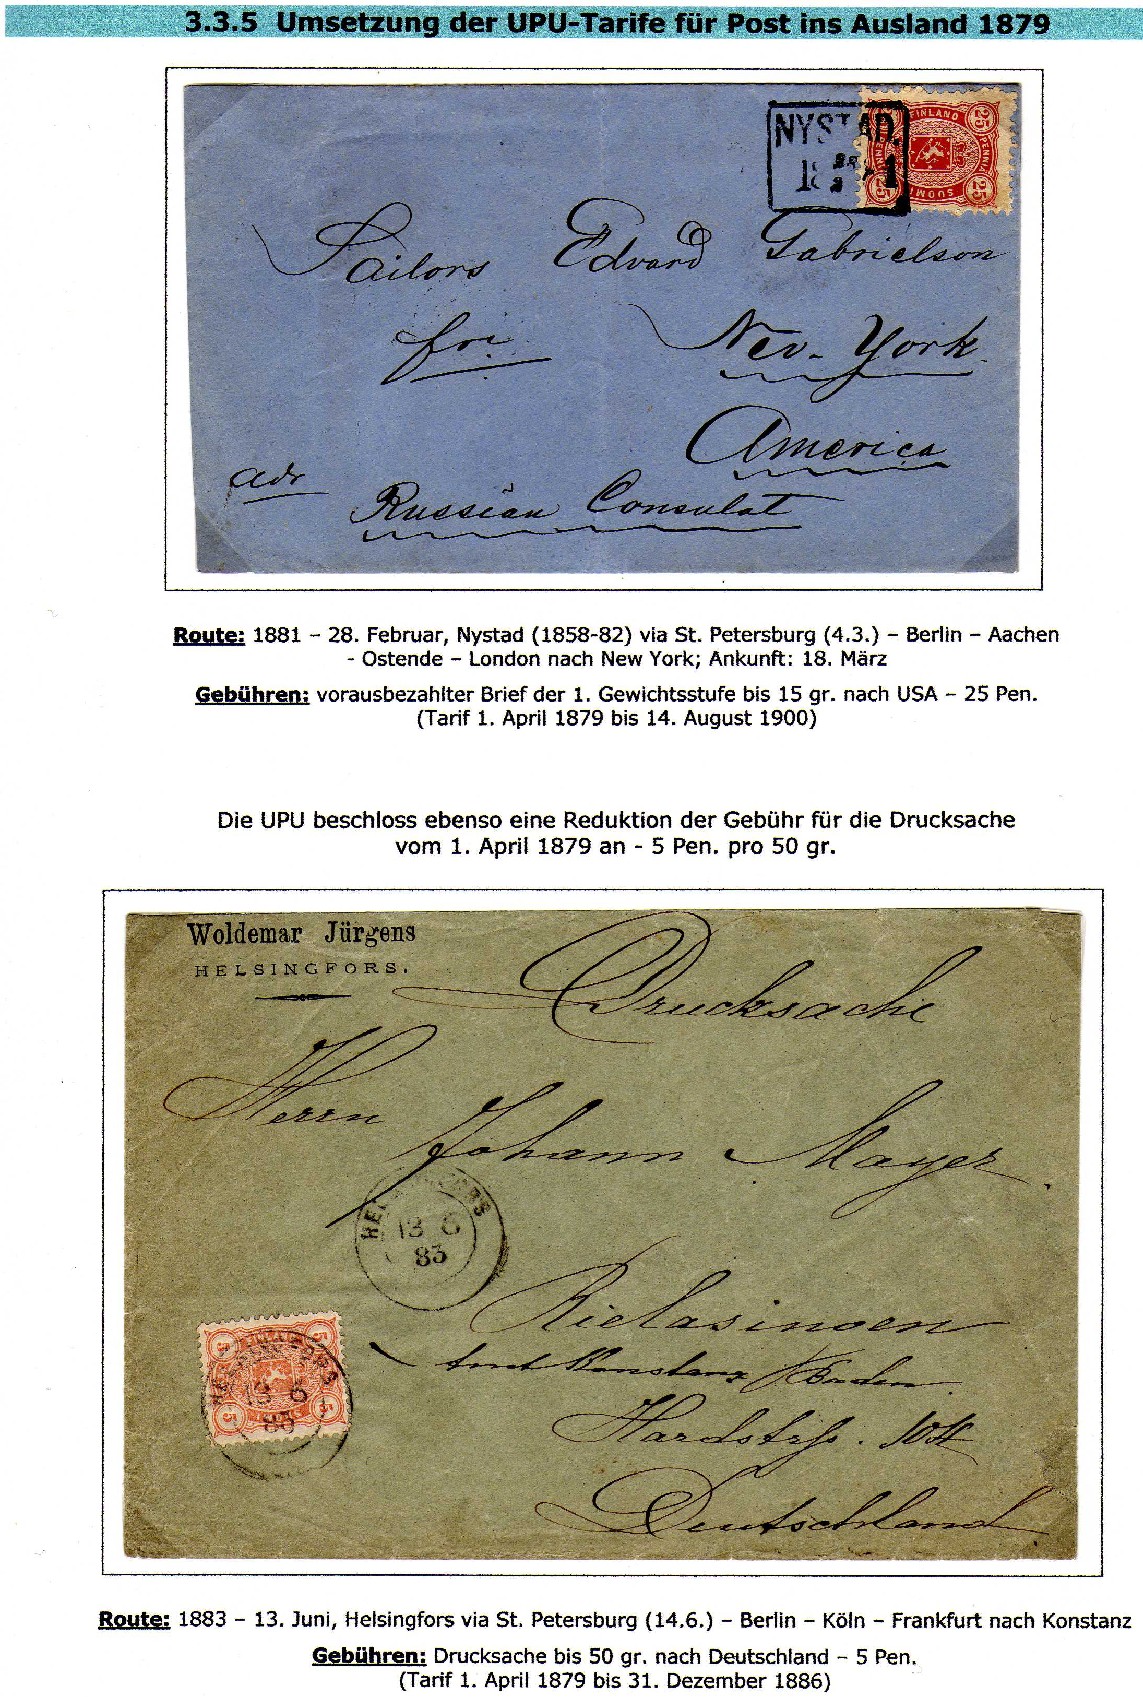 3.3.5 Umsetzung der UPU-Tarife für Post ins Ausland 1879
NYSTAD.
FINLAND
25 25
PENNI
SUOMI
25 25
Sailors Edvard Gabrielson
fri Nev-York
America
adr
Russian Consulat
Route: 1881 – 28. Februar, Nystad (1858-82) via St. Petersburg (4.3.) – Berlin – Aachen
- Ostende – London nach New York; Ankunft: 18. März
Gebühren: vorausbezahlter Brief der 1. Gewichtsstufe bis 15 gr. nach USA – 25 Pen.
(Tarif 1. April 1879 bis 14. August 1900)
Die UPU beschloss ebenso eine Reduktion der Gebühr für die Drucksache
vom 1. April 1879 an - 5 Pen. pro 50 gr.
Woldemar Jürgens
HELSINGFORS.
Drucksache
Herrn
Johann Mayer
13 6
83
Rielasingen
Amt Konstanz / Baden
5 5
13 6
83
5 5
Hardstrss.
Deutschland
Route: 1883 – 13. Juni, Helsingfors via St. Petersburg (14.6.) – Berlin – Köln – Frankfurt nach Konstanz
Gebühren: Drucksache bis 50 gr. nach Deutschland – 5 Pen.
(Tarif 1. April 1879 bis 31. Dezember 1886)